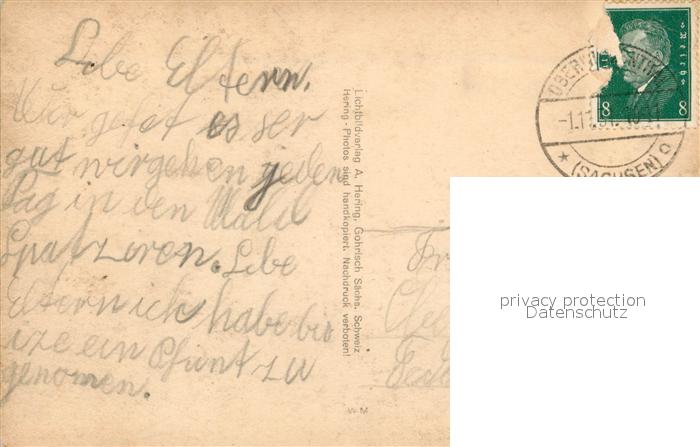 Lebe Eltern.
Mir get es ser
gut wir gehen jeden
Tag in den Wald
Spatzoren. Lebe
Eltern ich habe bis
ize ein Pfunt zu
genomen.
Lichtbildverlag A. Hering, Gohrisch Sächs. Schweiz
Hering-Photos sind handkopiert. Nachdruck verboten!
8 8
-1.11
(SACHSEN)
Fr
privacy protection
Datenschutz